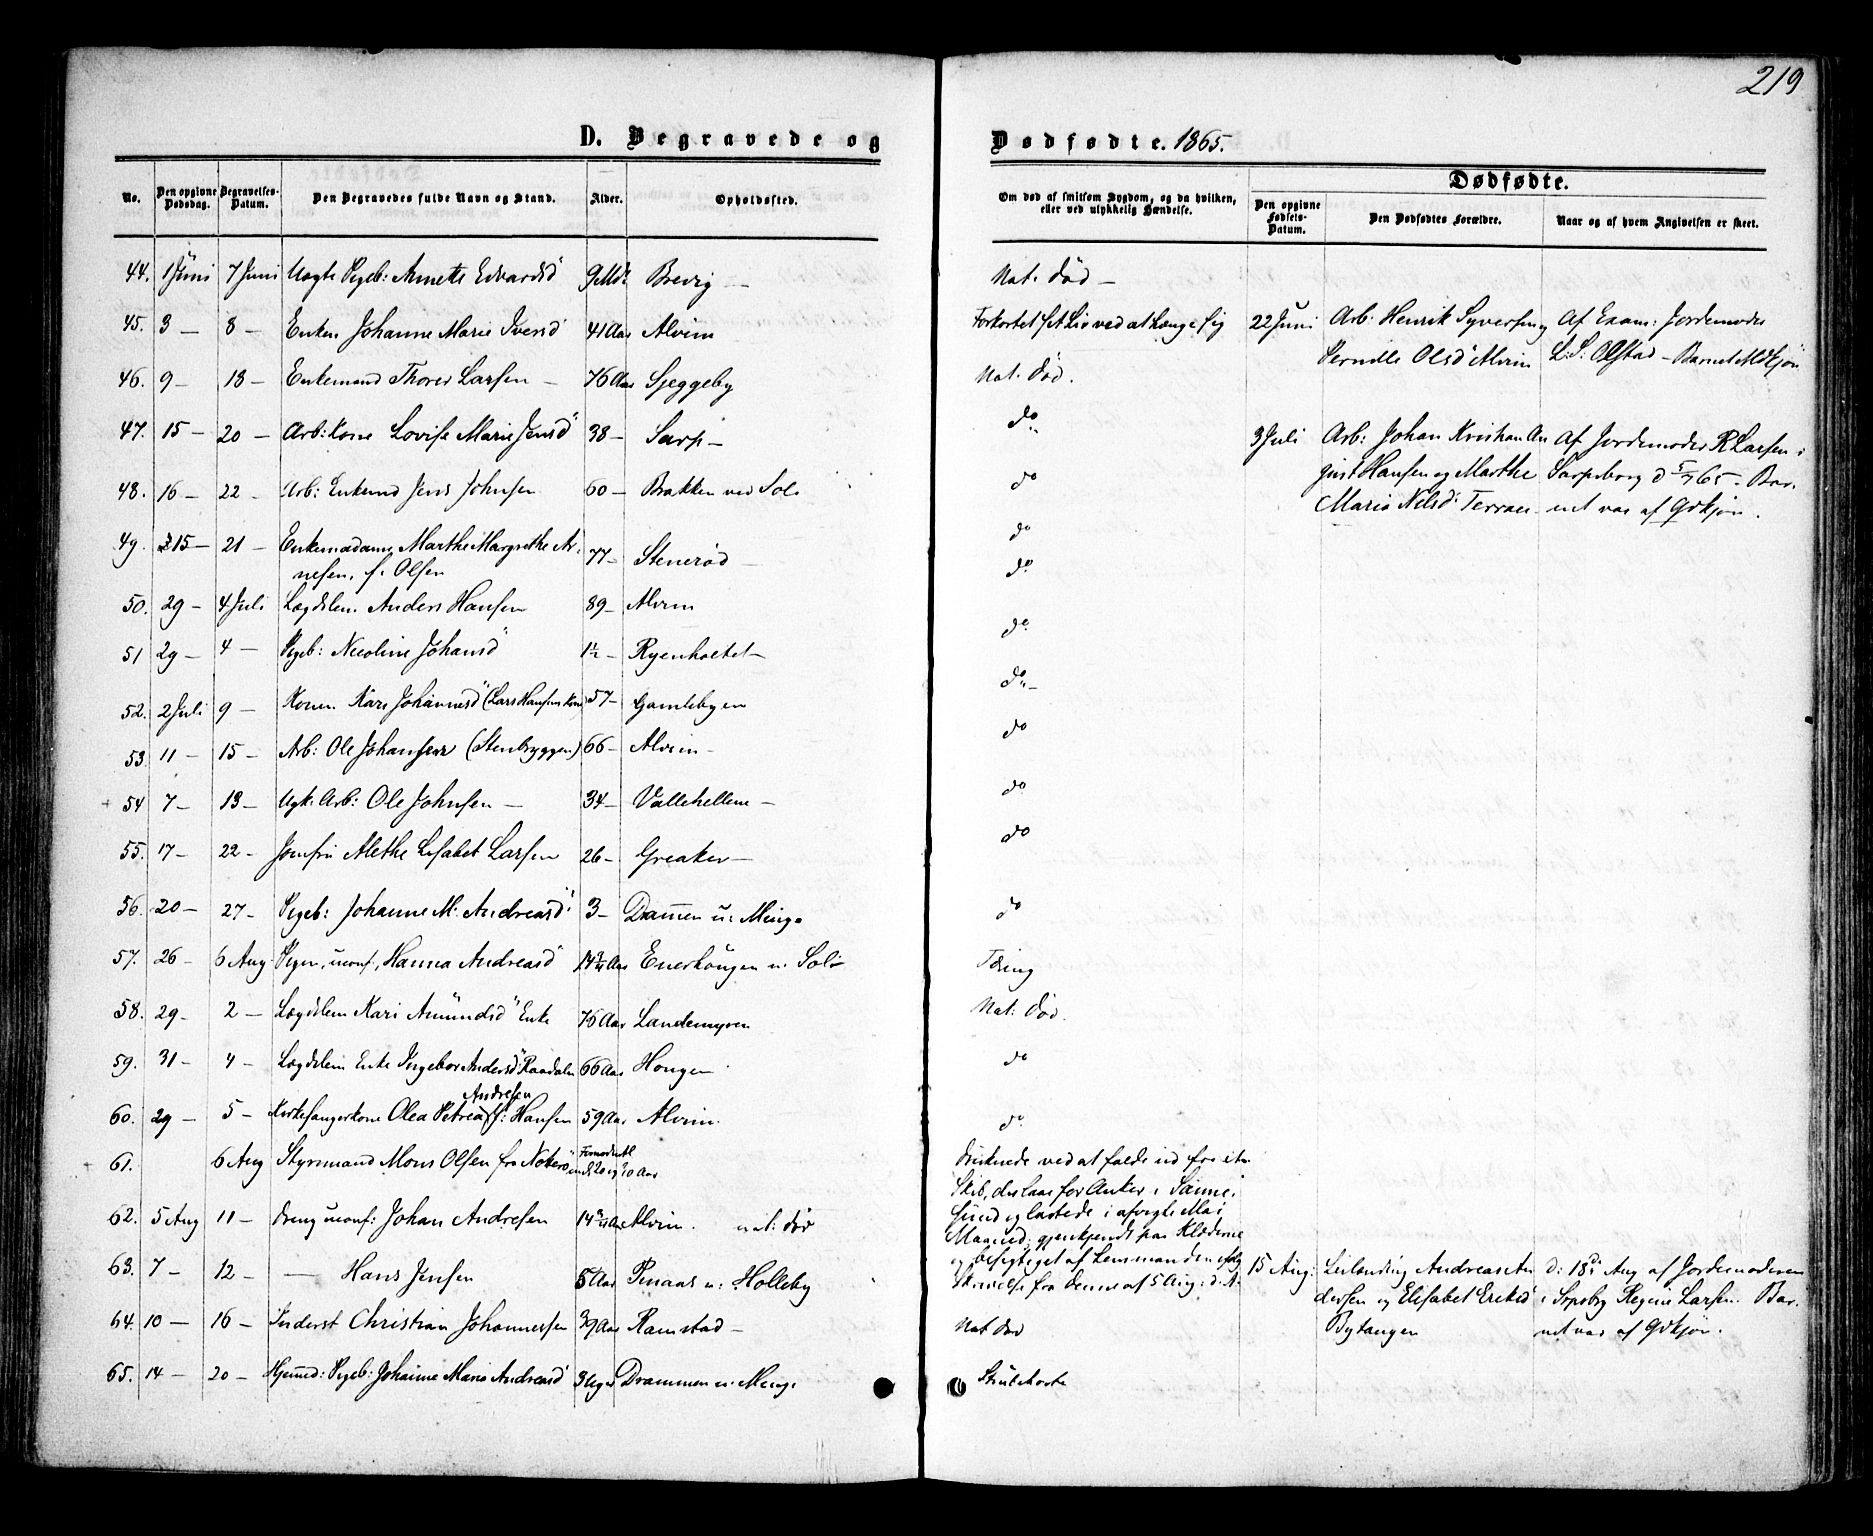 219
D. Begravede og Dødfødte. 1865.
No. Den opgivne Dødsdag. Begravelses-Datum. Den Begravedes fulde Navn og Stand. Alder. Opholdssted. Om død af smitsom Sygdom, og da hvilken, eller ved ulykkelig Hændelse.
Dødfødte.
Den opgivne Fødsels-Datum. Den Dødfødtes Forældre. Naar og af hvem Angivelsen er skeet.
44. 1 Juni 7 Juni Uægte Pigeb: Annette Edvardsd 9 Mdr Brevig — Nat. død —
45. 3 — 8 — Enken Johanne Marie Iversd 41 Aar Alvim Forkortet sit Liv ved at hænge sig
22 Juni Arb: Henrik Syversen og Af Exam: Jordemoder
Pernille Olsd Alvim L. S. Olstad — Barnet Mdkjøn
46. 9 — 18 — Enkemand Thorer Larsen — 76 Aar Sjeggeby Nat. død.
47. 15 — 20 — Arb: Kone Lovise Marie Jensd 38 — Sarp — do
3 Juli Arb: Johan Kristian Au Af Jordemoder R Larsen i
gust Hansen og Marthe Sarpsborg d 5/7 65. Bar
Marie Nilsd Terræe net var af Qvkjøn.
48. 16 — 22 — Arb: Enkemd Jens Johnsen 60 — Bakken ved Soli do
49. 15 — 21 — Enkemadame Marthe Margrethe Ar
nesen, f. Olsen 77 — Stenerød — do
50. 29 — 4 Juli Lægdslem Anders Hansen 89 — Alvim do
51 29 — 4 — Pigeb: Nicoline Johansd 1½ — Ryenholtet — do
52. 2 Juli 9 — Konen Kari Johannesd (Lars Hansens Kone) 57 — Gamlebyen do —
53. 11 — 15 — Arb: Ole Johansen (Stenbryggen) 66 — Alvim — do
54 7 — 13 — Ugk. Arb: Ole Johnsen — 34 — Vallehellene — do
55. 17 — 22 — Jomfru Alethe Lisabet Larsen 26 — Greaker — do
56. 20 — 27 — Pigeb: Johanne M. Andreasd 3 — Dammen u: Minge do
57. 26 — 6 Aug Pigen, uconf, Hanna Andreasd 14 Aar Enerhougen u. Soli Tæring
58. 29 — 2 — Lægdslem Kari Amundsd Enke 76 Aar Landemyren Nat: død.
59. 31 — 4 — Lægdslem Enke Ingebor Andersd Raadalen 66 Aar Hougen do
Andresen
60. 29 — 5 — Kirkesangerkone Olea Petrea f: Hansen 59 Aar Alvim. do
61. 6 Aug Styrmand Mons Olsen fra Nøterø Formodentl 20 Aar
druknede ved at falde ud fra et
Skib, der laae for Anker i Sanne
sund og lastede i afvigte Mai
Maaned; gjenkjendt paa Klæderne
og besigtiget af Lensmanden ifølg
Skrivelse fra denne af 5 Aug: d. A.
62. 5 Aug 11 — Dreng uconf: Johan Andresen 14 Aar Alvim. nat: død
63. 7 — 12 — — Hans Jensen 5 Aar Penaas u: Holleby
15 Aug: Leilending Andreas An D: 18de Aug af Jordemoderen
dersen og Elisabet Eriksd i Spsbrg Regine Larsen. Bar
Bytangen net var af Qvkjøn.
64. 10 — 16 — Inderst Christian Johannessen 39 Aar Ramstad — Nat død
65. 14 — 20 — Hjemd: Pigeb: Johanne Marie Andreasd 3 Uger Drammen u: Minge Strubehoste